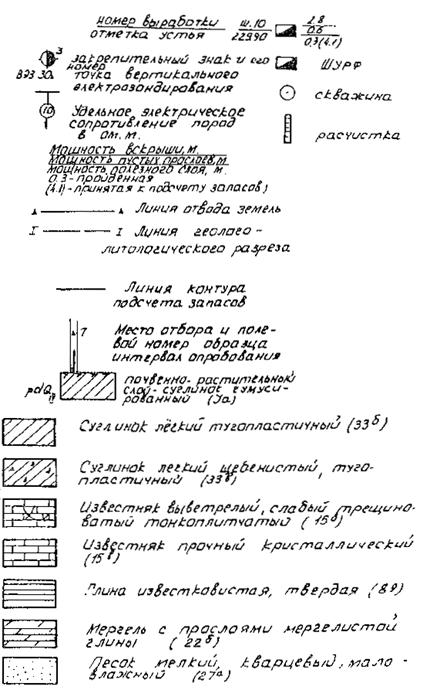 номер выработки ш.10 2.8
отметка устья 229.90 0.6
0.3(4.1)
3
закрепительный знак и его
номер
ВЭЗ 30. точка вертикального
электрозондирования
шурф
10 Удельное электрическое
сопротивление пород
в ом. м.
скважина
расчистка
Мощность вскрыши, м.
Мощность пустых прослоев, м
мощность полезного слоя, м.
0.3 - пройденная
(4.1) - принятая к подсчету запасов)
Линия отвода земель
I I Линия геолого-
литологического разреза
Линия контура
подсчета запасов
7 Место отбора и поле-
вой номер образца
интервал опробования
pdQ почвенно-растительный
слой - суглинок гумуси-
рованный (9а)
Суглинок лёгкий тугопластичный (33б)
Суглинок легкий щебенистый, туго-
пластичный (33в)
Известняк выветрелый, слабый трещино-
ватый тонкоплитчатый (15а)
Известняк прочный кристаллический
(15в)
Глина известковистая, твердая (8д)
Мергель с прослоями мергелистой
глины (22б)
Песок мелкий, кварцевый, мало-
влажный (27а)